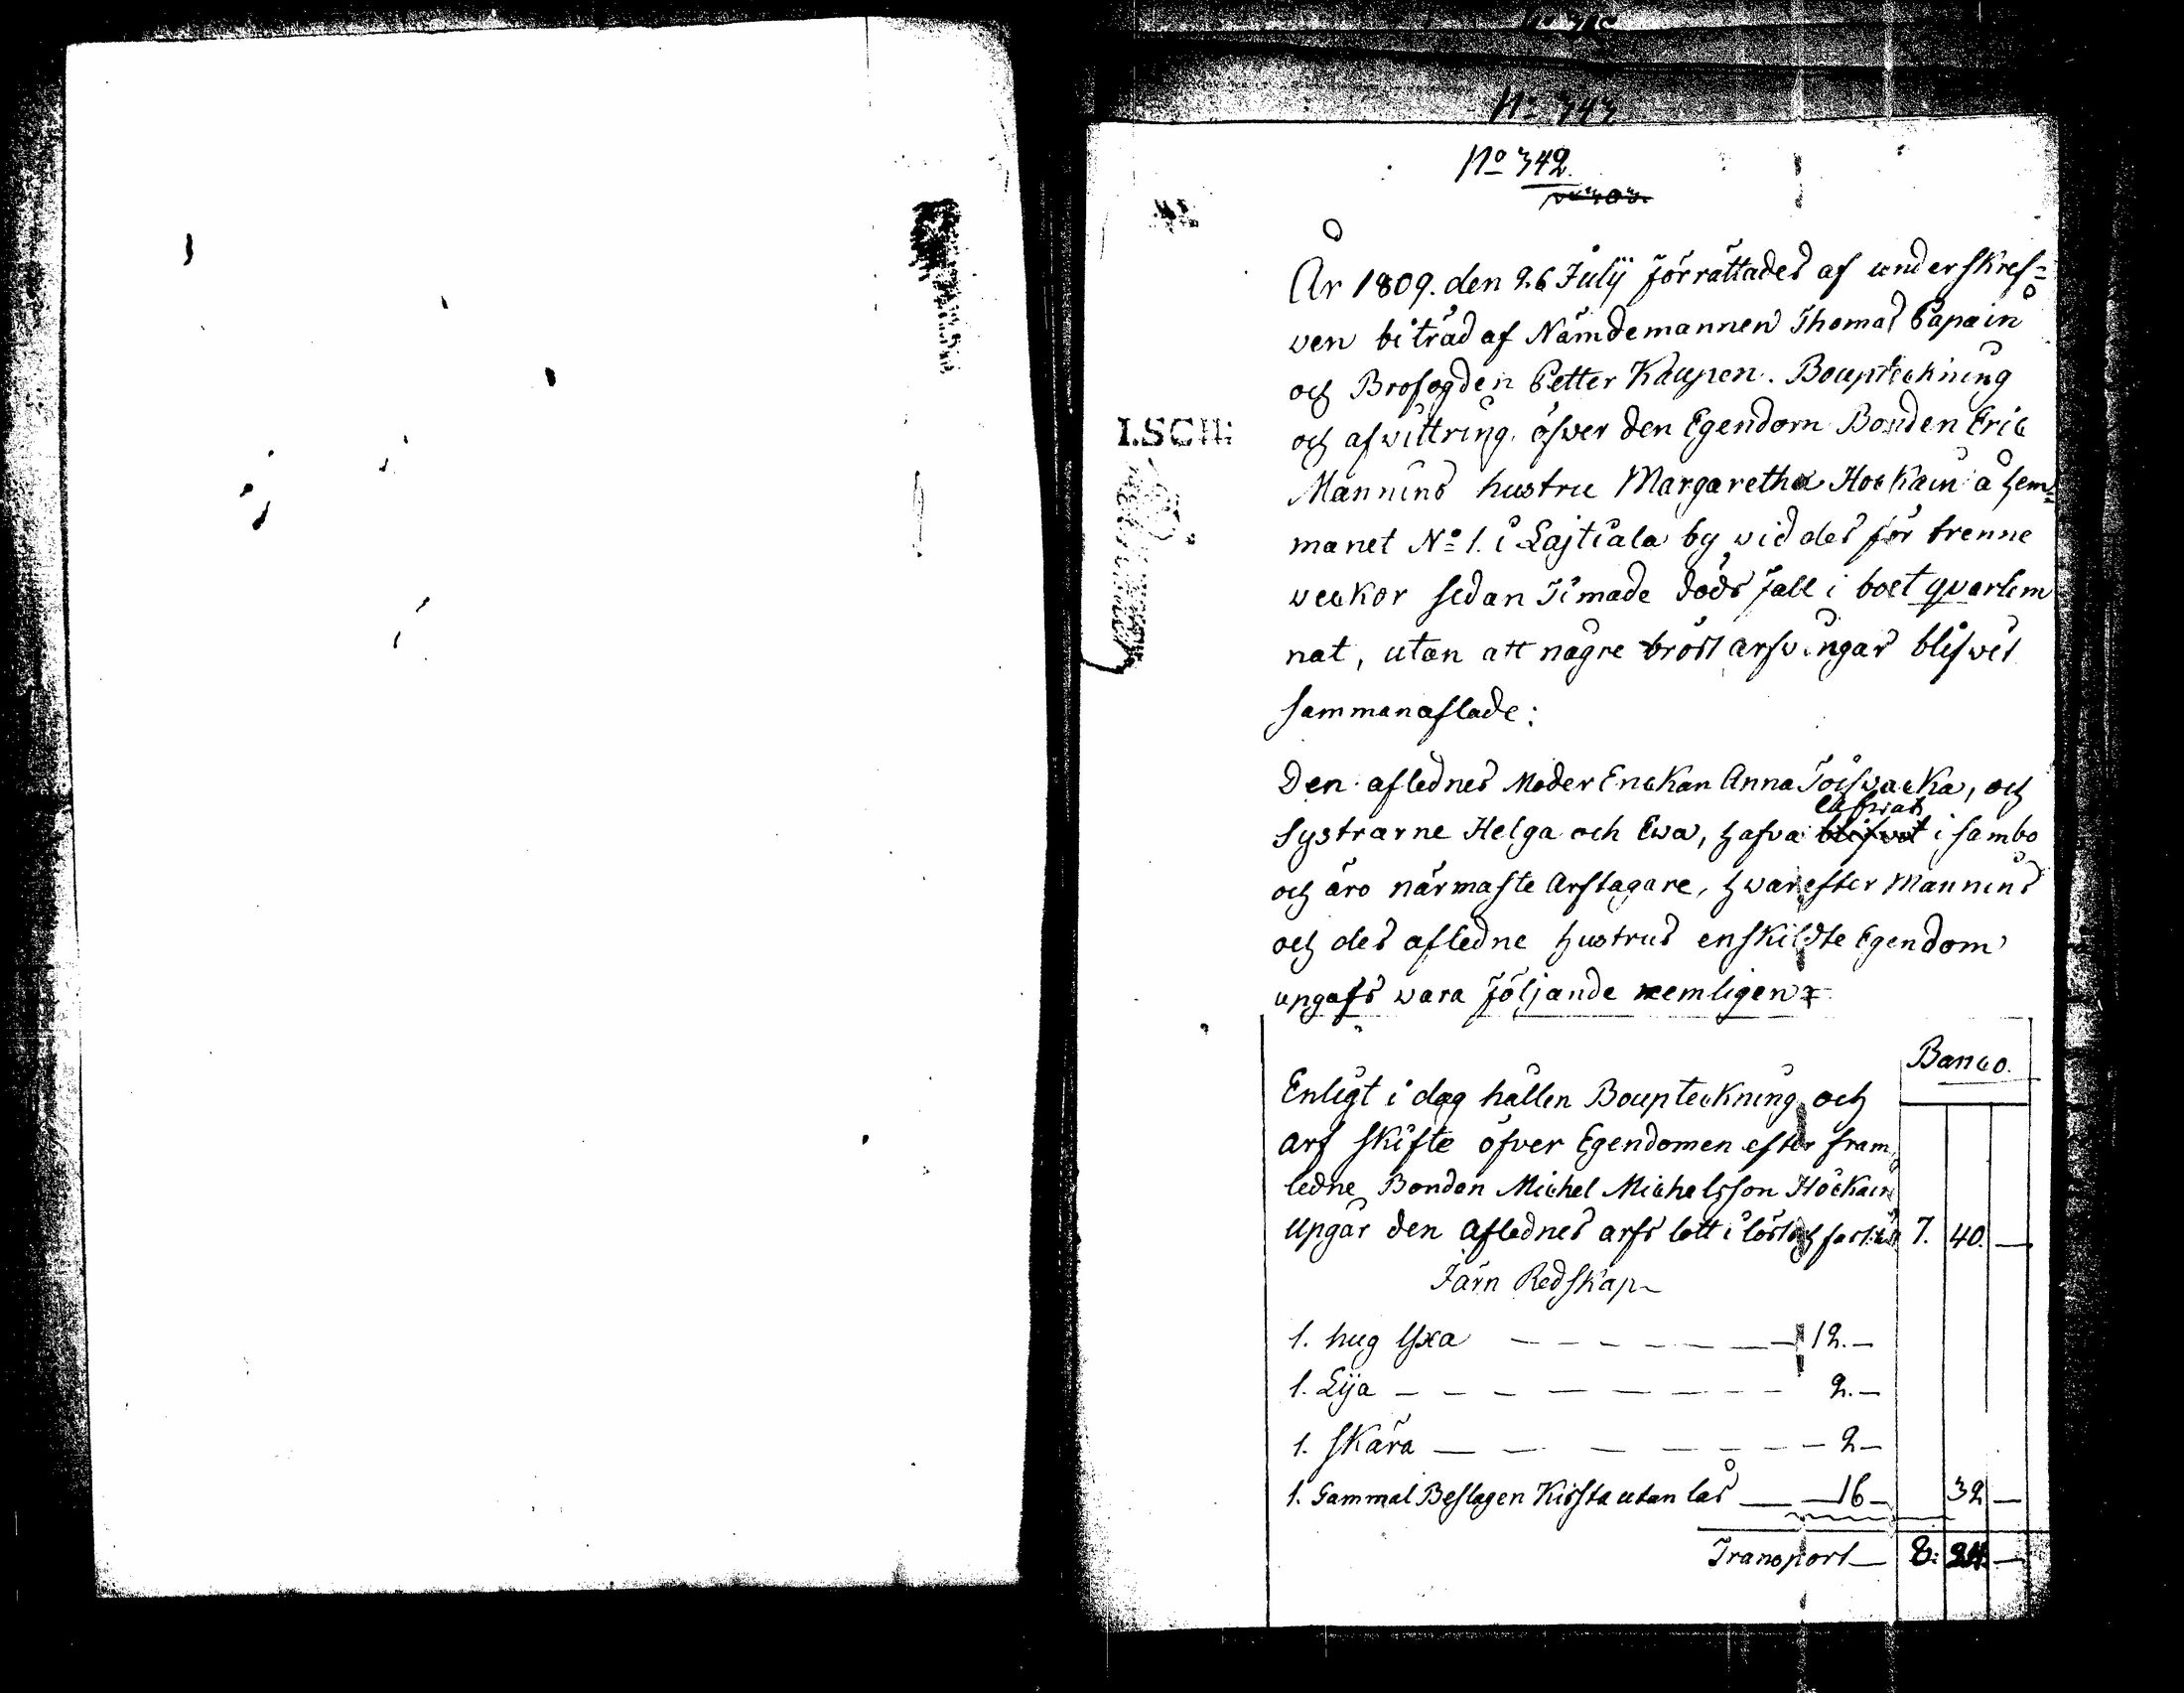 No 343
No 342.
År 1809. den 26 Julÿ förrättades af underskref=
ven biträd af Nämdemannen Thomas Papain
och Brofogden Petter Kaupen. Boupteckning
och afvittring öfver den Egendom Bonden Eric
I.SCH:
Mannins hustru Margaretha Hockain å hem=
manet No 1. i Lajtiala by vid des för trenne
veckor sedan Timade döds fall i boet qvarlem
nat, utan att någre bröst arfvingar blifvit
sammanaflade:
Den aflednes Moder Enckan Anna Toiswacka, och
lefwat
Systrarne Helga och Ewa, hafva blifvet i sambo
och äro närmaste Arftagare, hvarefter Mannins
och des afledne hustrus enskildte Egendom
upgafs vara följande nemligen:
Banco.
Enligt i dag hållen Boupteckning och
arf skifte öfver Egendomen efter fram
ledne Bonden Michel Michelsson Höckain
Upgår den Aflednes arfs lott i löst och fast 7. 40. —
Järn Redskap
1. hug Yxa — — — — — — 12. —
1. Lÿa — — — — — — — — 2. —
1. Skära — — — — — — — 2 —
1. Gammal Beslagen Kista utan lås — 16 — 32 —
Transport — 8: 24. —